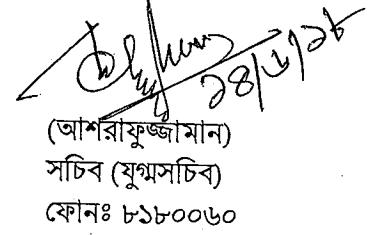 ২৪/৬/১৮
(আশরাফুজ্জামান)
সচিব (যুগ্মসচিব)
ফোনঃ ৮১৮০০৬০